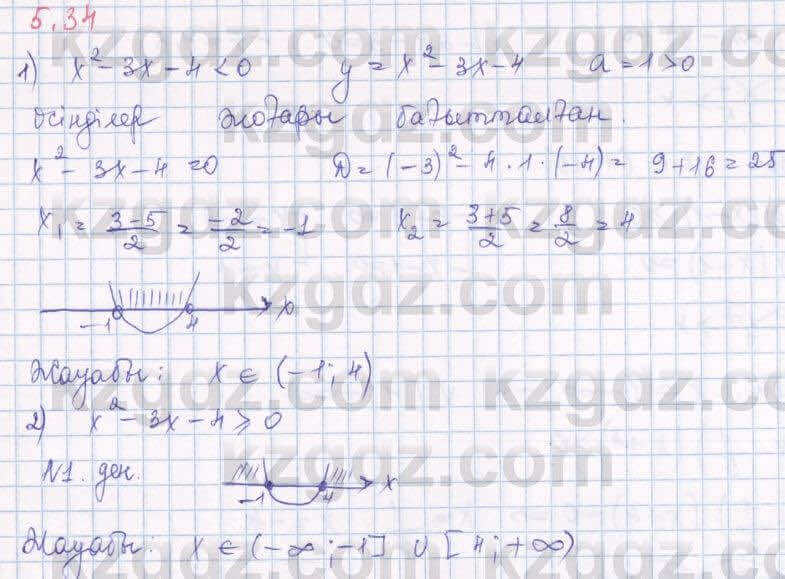 5.34
1) x² - 3x - 4 < 0 y = x² - 3x - 4 a = 1 > 0
Өсінділер жоғары бағытталған.
x² - 3x - 4 = 0 D = (-3)² - 4 · 1 · (-4) = 9 + 16 = 25
x₁ = (3-5)/2 = (-2)/2 = -1 x₂ = (3+5)/2 = 8/2 = 4
-1 4 x
Жауабы: x ∈ (-1; 4)
2) x² - 3x - 4 ≥ 0
№1. ден.
-1 4 x
Жауабы: x ∈ (-∞; -1] ∪ [4; +∞)
kzgdz.com kzgdz.com
kzgdz.com kzgdz.com
kzgdz.com
kzgdz.com
kzgdz.com kzgdz.com
kzgdz.com
kzgdz.com kzgdz.com